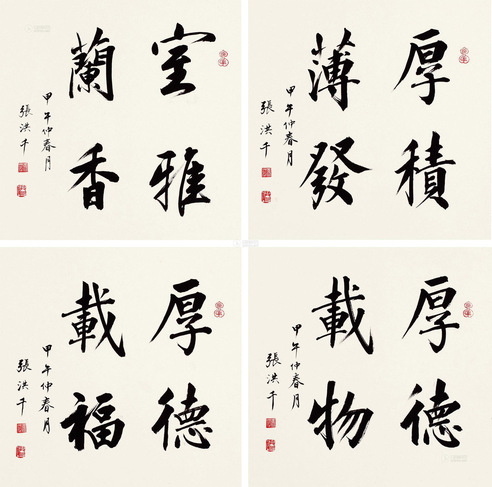 室雅
蘭香
甲午仲春月
張洪千
厚積
薄發
甲午仲春月
張洪千
厚德
載福
甲午仲春月
張洪千
厚德
載物
甲午仲春月
張洪千